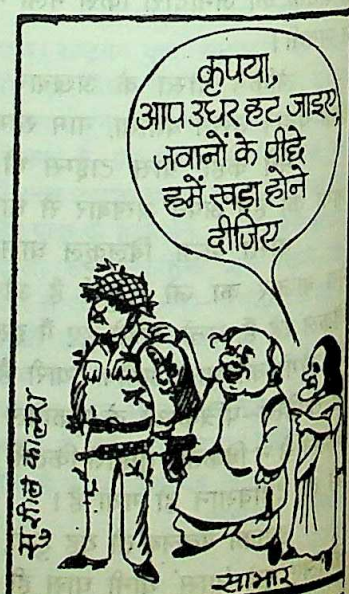 कृपया,
आप उधर हट जाइए,
जवानों के पीछे
हमें खड़ा होने
दीजिए
सुशील कालरा
साभार